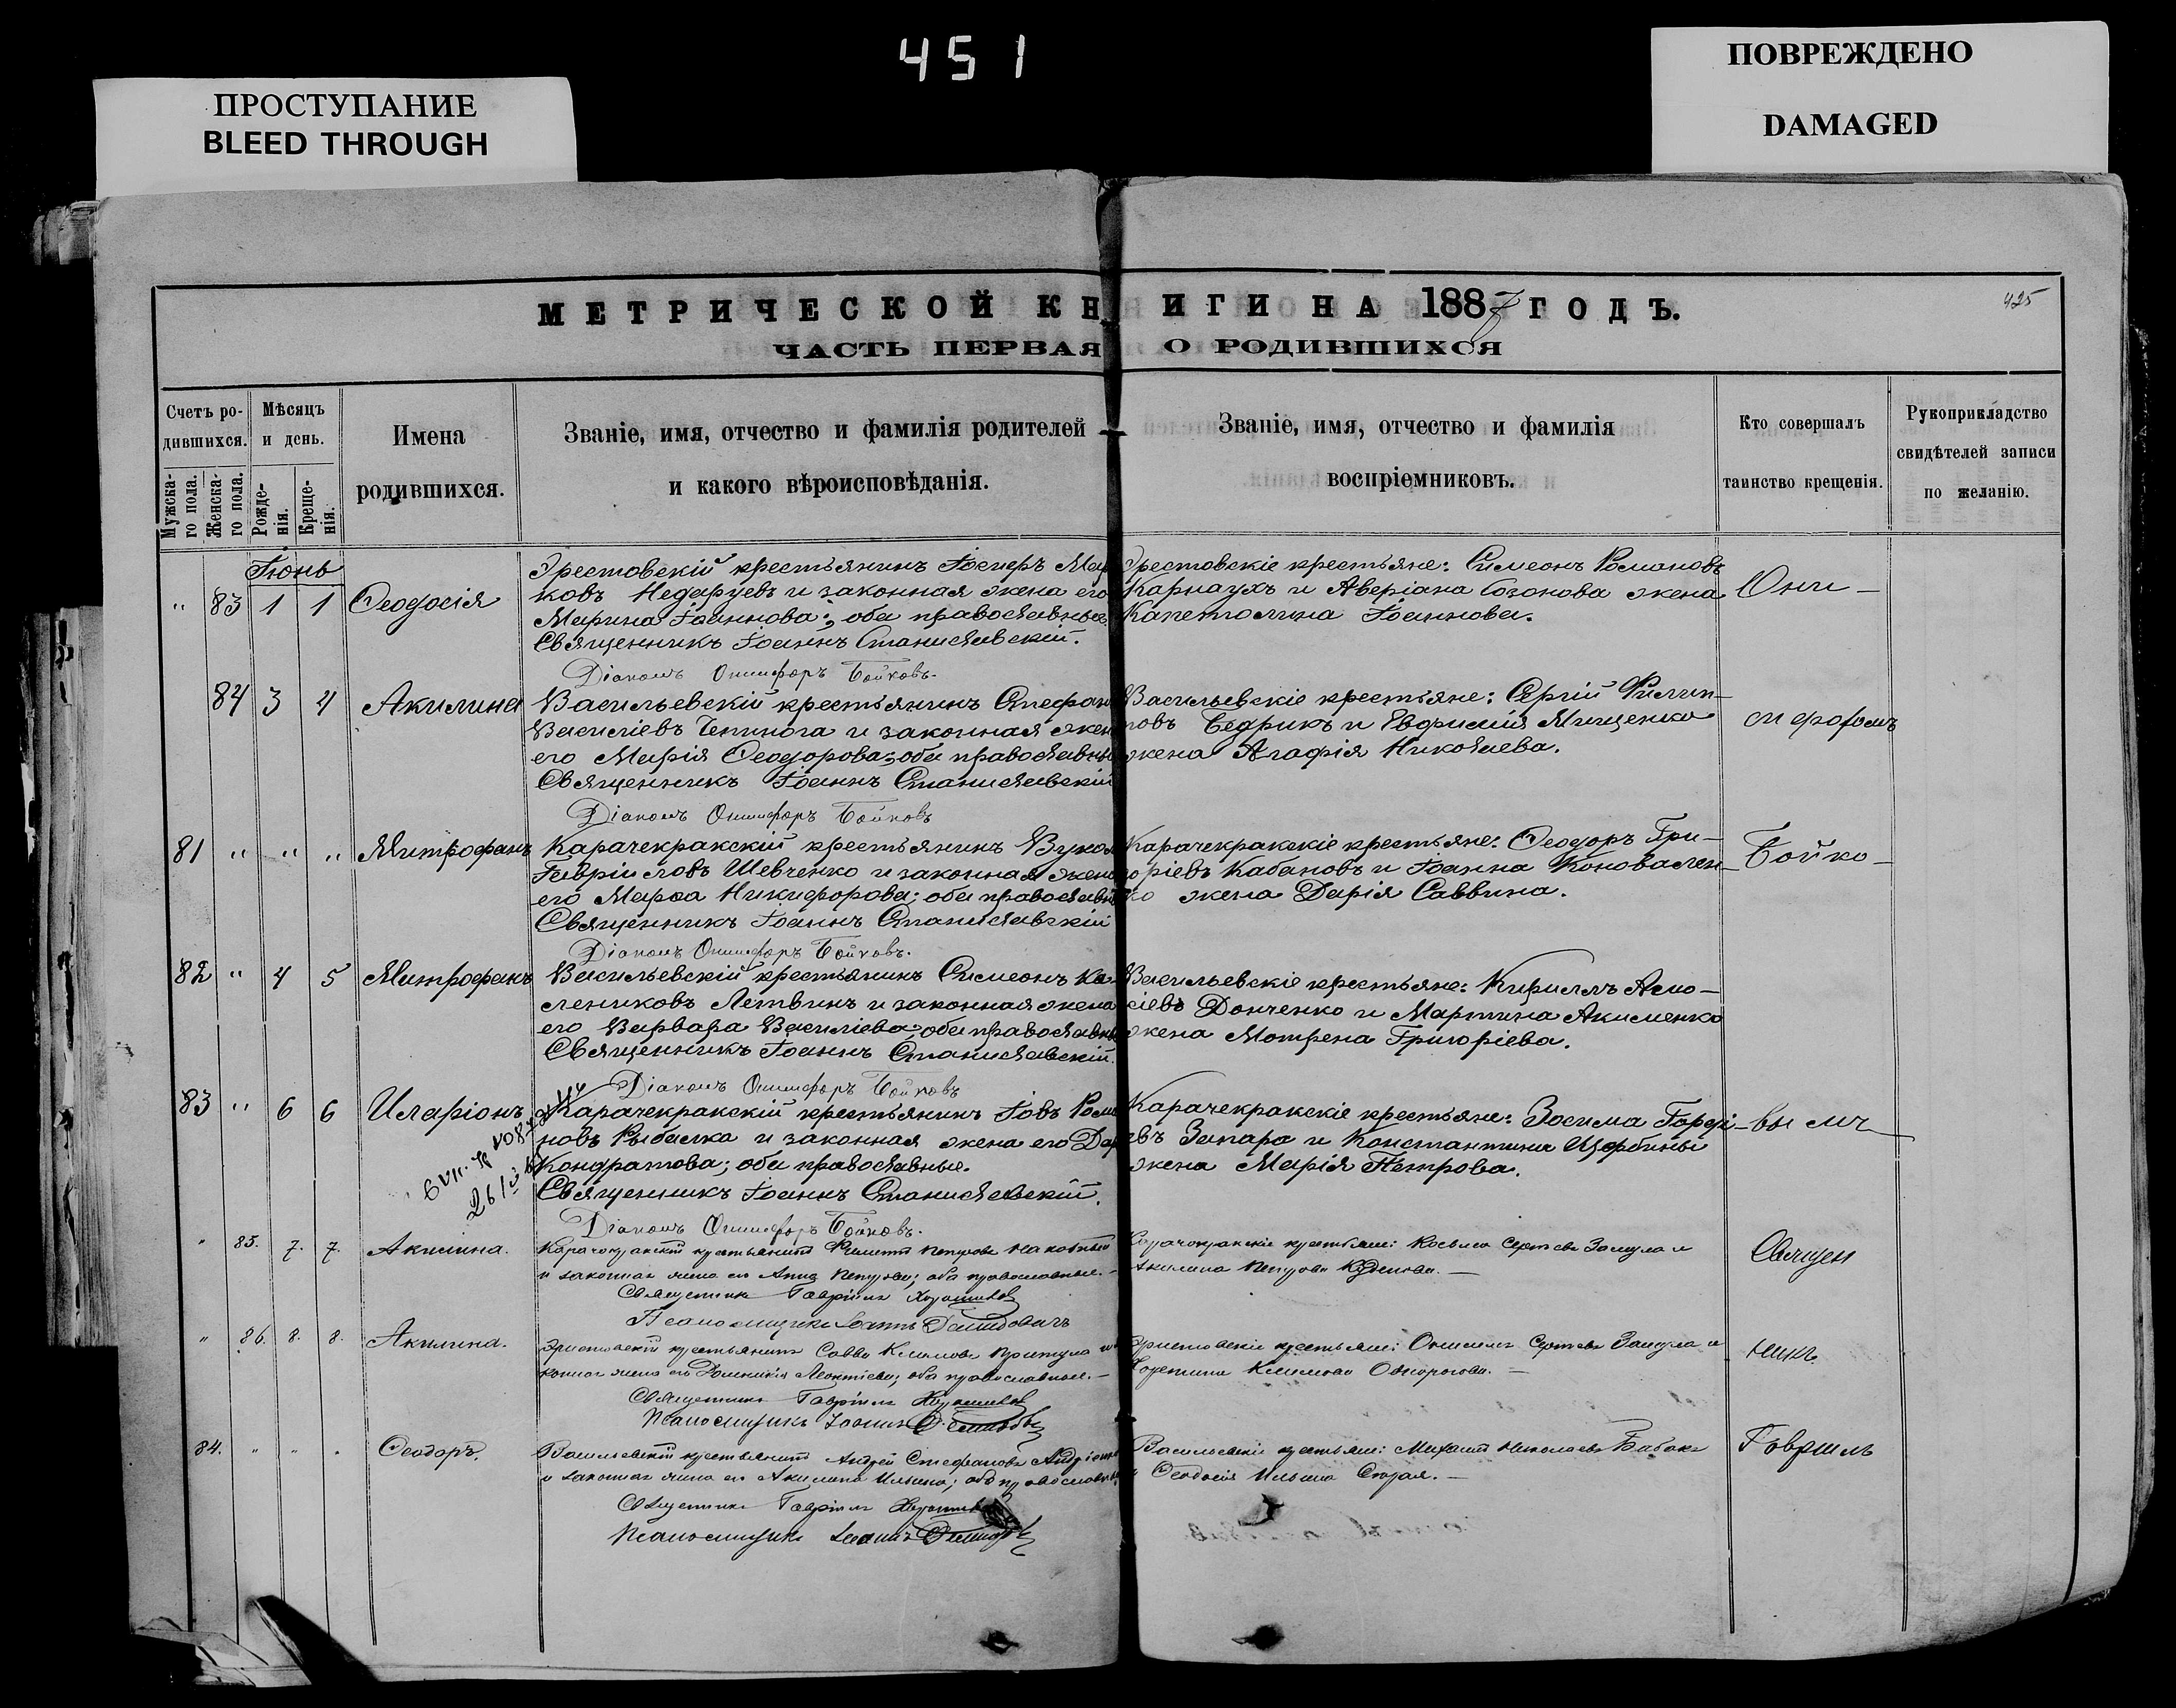 451
ПРОСТУПАНИЕ
BLEED THROUGH
ПОВРЕЖДЕНО
DAMAGED
МЕТРИЧЕСКОЙ КНИГИ НА 1887 ГОДЪ.
425
ЧАСТЬ ПЕРВАЯ О РОДИВШИХСЯ
Счетъ родившихся.
Мужскаго пола.
Женскаго пола.
Мѣсяцъ и день.
Рожденія.
Крещенія.
Имена родившихся.
Званіе, имя, отчество и фамилія родителей
и какого вѣроисповѣданія.
Званіе, имя, отчество и фамилія
воспріемниковъ.
Кто совершалъ
таинство крещенія.
Рукоприкладство
свидѣтелей записи
по желанію.
Іюнь
" 83 1 1 Ѳеодосія
Эрестовскій крестьянинъ Іосифъ Мар
ковъ и законная жена его
Марина Іоаннова; оба православные.
Священникъ Іоаннъ Станиславскій.
Діаконъ Онисифоръ Бойковъ.
Эрестовскіе крестьяне: Симеонъ Романовъ
Карнаухъ и Аверіана Созонова жена
Капетолина Іоаннова.
Они-
84 3 4 Акилина
Васильевскій крестьянинъ Стефан
Василіевъ Чепинога и законная жен
его Марія Ѳеодорова; оба православны
Священникъ Іоаннъ Станиславскій
Діаконъ Онисифоръ Бойковъ
Васильевскіе крестьяне: Сергій Филип-
повъ Бедрикъ и Евфимія Мищенко
жена Агафія Николаева.
сифоромъ
81 " " " Митрофанъ
Карачекракскій крестьянинъ Вукол
Гавріиловъ Шевченко и законная жена
его Марѳа Никифорова; оба православн
Священникъ Іоаннъ Станиславскій
Діаконъ Онисифоръ Бойковъ.
Карачекракскіе крестьяне: Ѳеодоръ Гри-
горіевъ Кабановъ и Іоанна Коновален-
ко жена Дарія Саввина.
Бойко-
82 " 4 5 Митрофанъ
Васильевскій крестьянинъ Симеонъ Ка-
лениковъ Летвинъ и законная жена
его Варвара Василіева; оба православны
Священникъ Іоаннъ Станиславскій.
Діаконъ Онисифоръ Бойковъ
Васильевскіе крестьяне: Кириллъ Алек-
сіевъ Донченко и Мартина Акименко
жена Мотрена Григоріева.
83 " 6 6 Иларіонъ
Карачекракскій крестьянинъ Іовъ Рома
новъ Рыбалка и законная жена его Дар
Кондратова; оба православные.
Священникъ Іоаннъ Станиславскій.
Діаконъ Онисифоръ Бойковъ.
Карачекракскіе крестьяне: Зосима Гордѣ-
евъ Запара и Константина Щербины
жена Марія Петрова.
вымъ
" 85. 7. 7. Акилина.
Карачокракскій крестьянинъ Филиппъ Петровъ
и законная жена его Анна Петрова; оба православные.-
Священникъ Гавріилъ
Псаломщикъ Іоаннъ Демидовичъ
Карачокракскіе крестьяне: Косьма Сергѣевъ Замула и
Акилина Петрова
Священ
" 86. 8. 8. Акилина.
Эристовскій крестьянинъ Савва Климовъ Притула и за
конная жена его Домникія Леонтіева; оба православные.-
Священникъ Гавріилъ
Псаломщикъ Іоаннъ
Эристовскіе крестьяне: Онисимъ Сергѣевъ Замула и
Климова Однорогова.-
никъ
84. " " " Ѳеодоръ.
Васильевскій крестьянинъ Андрей Стефановъ
и законная жена его Акилина Ильина; оба православные
Священникъ Гавріилъ
Псаломщикъ Іоаннъ
Васильевскіе крестьяне: Михаилъ Николаевъ Бабакъ
и Ѳеодосія Ильина Старая.-
Гавріилъ